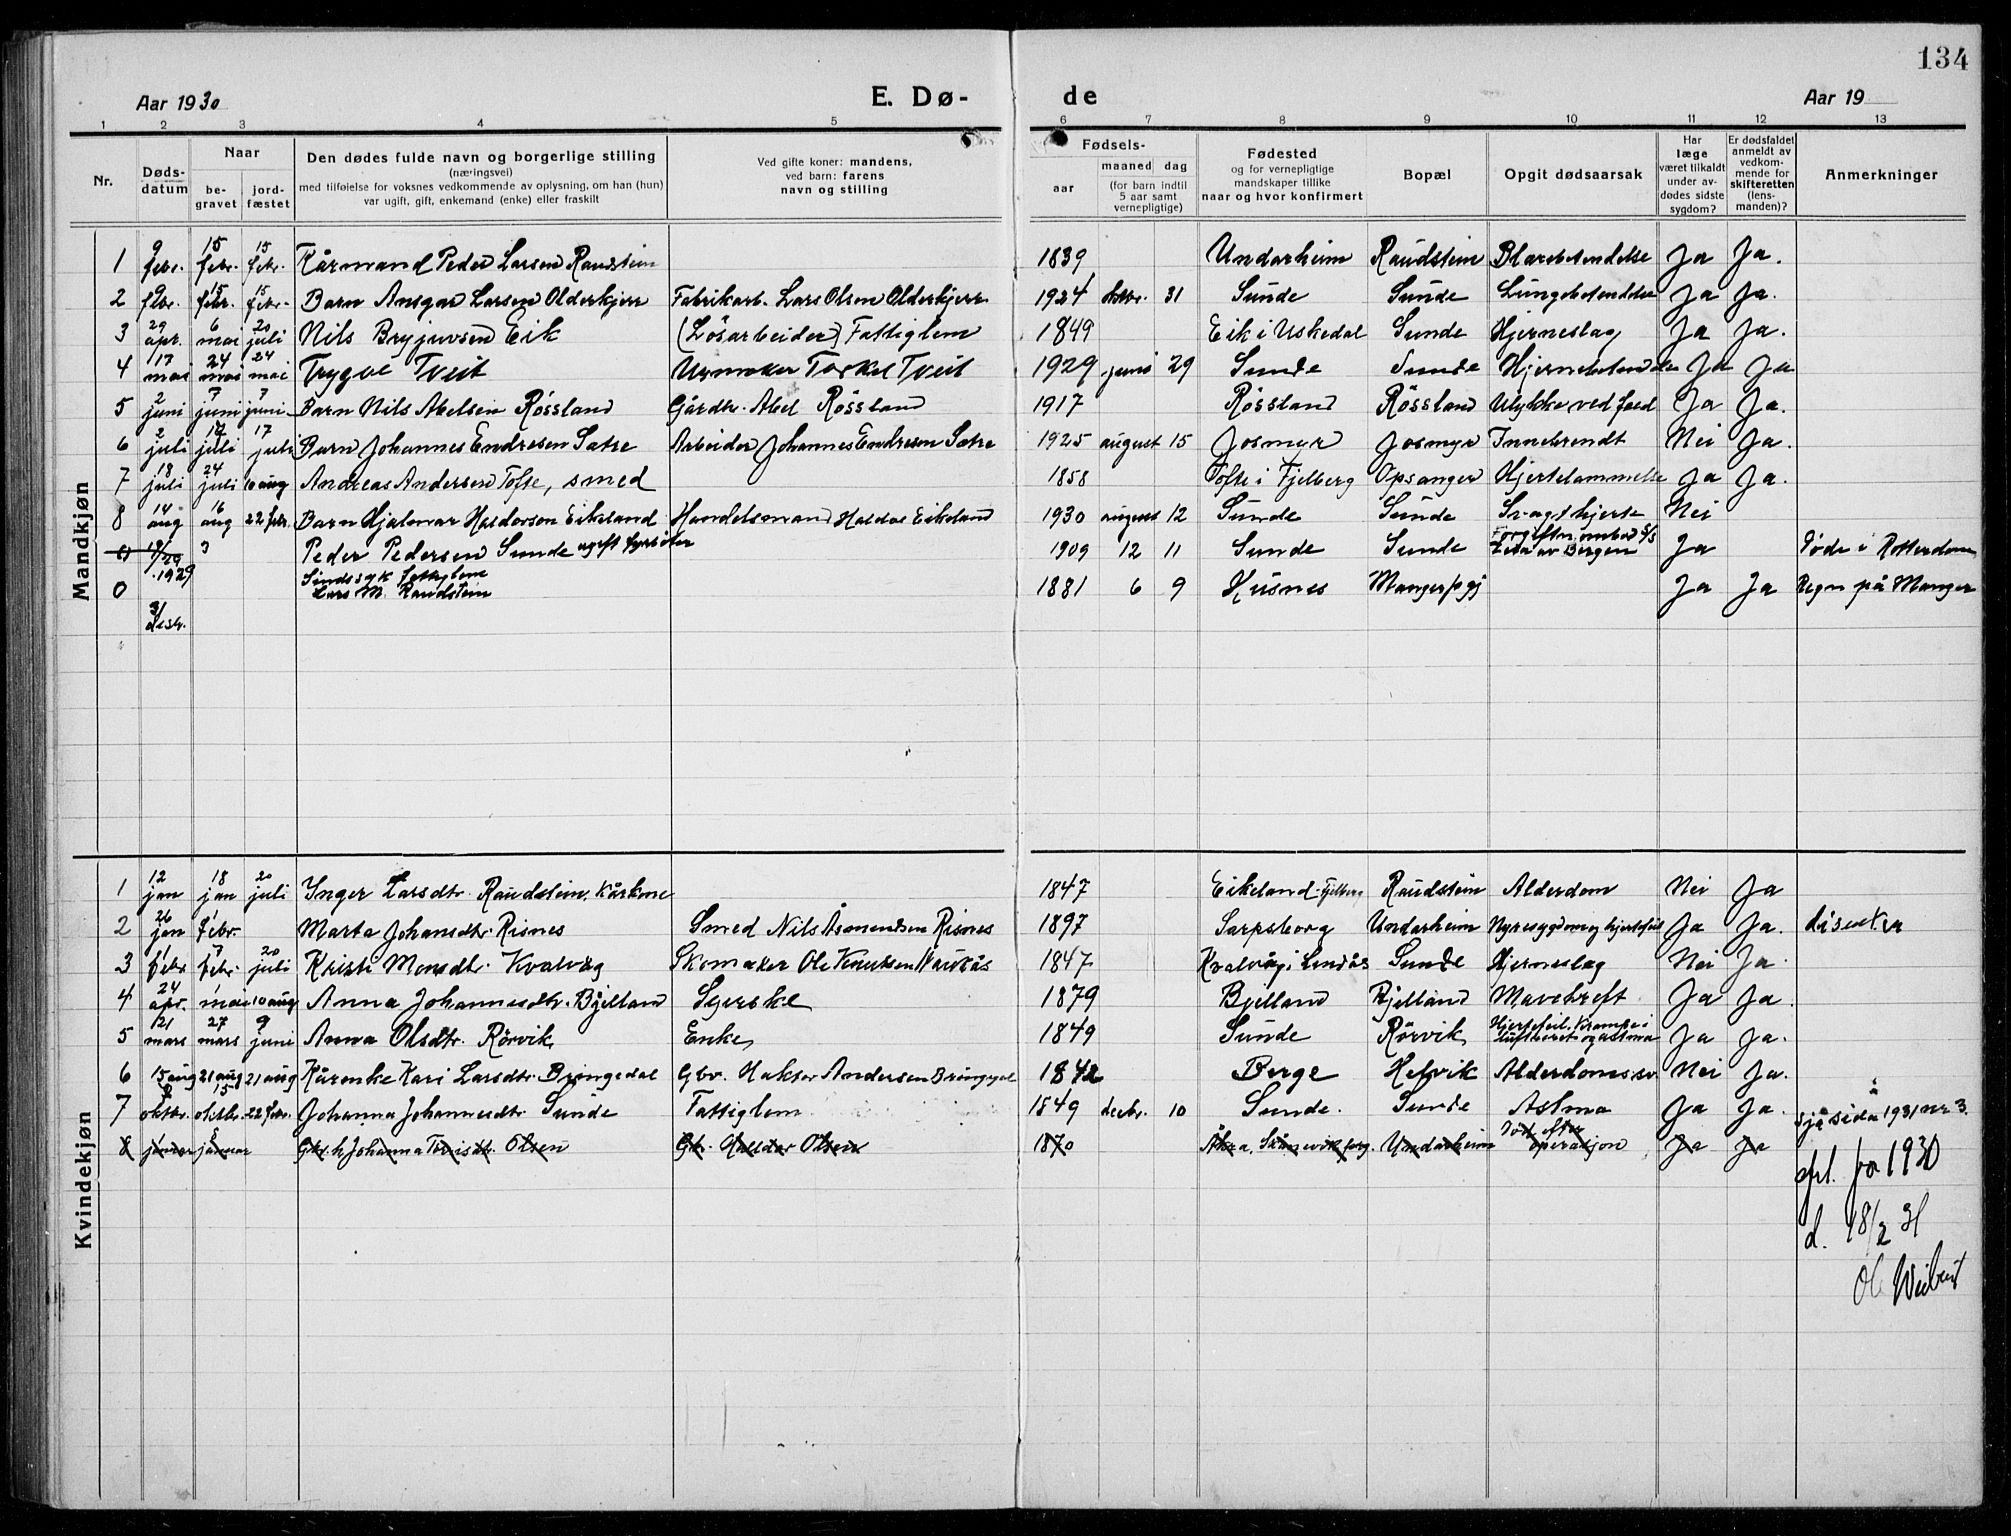 134
Aar 1930 E. Dø- de Aar 19
1 2 3 4 5 6 7 8 9 10 11 12 13
Nr.
Døds-datum
Naar
be-gravet
jord-fæstet
Den dødes fulde navn og borgerlige stilling
(næringsvei)
med tilføielse for voksnes vedkommende av oplysning, om han (hun)
var ugift, gift, enkemand (enke) eller fraskilt
Ved gifte koner: mandens,
ved barn: farens
navn og stilling
Fødsels-
aar
maaned dag
(for barn indtil
5 aar samt
vernepligtige)
Fødested
og for vernepligtige
mandskaper tillike
naar og hvor konfirmert
Bopæl
Opgit dødsaarsak
Har
læge
været tilkaldt
under av-
dødes sidste
sygdom?
Er dødsfaldet
anmeldt av
vedkom-
mende for
skifteretten
(lens-
manden)?
Anmerkninger
Mandkjøn
1 9 febr. 15 febr. 15 febr. Kårmand Peder Larsen Raudstein 1839 Undarheim Raudstein Blærebetendelse Ja Ja.
2 9 febr. 15 febr. 15 febr. Barn Ansgar Larsen Olderkjerr Fabrikarb. Lars Olsen Olderkjerr 1924 oktbr. 31 Sunde Sunde Lungebetendelse Ja Ja.
3 29 apr. 6 mai 20 juli Nils Brynjuvsen Eik (Løsarbeider) Fattiglem 1849 Eik i Uskedal Sunde Hjerneslag Ja Ja.
4 17 mai 24 mai 24 mai Trygve Tveit Urmaker Torkel Tveit 1929 juni 29 Sunde Sunde Hjernebetendelse Ja Ja
5 2 juni 7 juni 7 juni Barn Nils Abelsen Røssland Gårdbr. Abel Røssland 1917 Røssland Røssland Ulykke ved fald Ja Ja.
6 2 juli 17 juli 17 juli Barn Johannes Endresen Sætre Arbeider Johannes Endresen Sætre 1925 august 15 Josmyr Josmyr Innebrendt Nei Ja.
7 18 juli 24 juli 10 aug Andreas Andersen Tofte, smed 1858 Tofte i Fjelberg Opsanger Hjertelammelse Ja Ja.
8 14 aug 16 aug 22 febr. Barn Hjalmar Haldorson Eikeland Handelsmand Haldor Eikeland 1930 august 12 Sunde Sunde Svagt hjerte Nei
9 3 1929 Peder Pedersen Sunde ugift fyrbøter 1909 12 11 Sunde Sunde Forgiftn. ombord S/S Leda av Bergen Ja Døde i Rotterdam
0 3/ desbr. Sindssyk fattiglem Lars M. Raudstein 1881 6 9 Husnes Manger pgj Ja Ja Regn på Manger
Kvindekjøn
1 12 jan 18 jan 20 juli Inger Larsdtr. Raudstein. Kårkone 1847 Eikeland Fjelberg Raudstein Alderdom Nei Ja
2 26 jan 1 febr. Marta Johansdtr. Risnes Smed Nils Åsmundsen Risnes 1897 Sarpsborg Undarheim Nyresygdom og hjertefeil Ja Ja. dissenter
3 1 febr 7 febr. 20 juli Kristi Monsdtr. Kvalvåg Skomaker Ole Knutsen 1847 Kvalvåg i Lindås Sunde Hjerneslag Nei Ja.
4 24 apr. 1 mai 10 aug Anna Johannesdtr. Bjelland Syerske 1879 Bjelland Bjelland Mavekreft Ja Ja.
5 21 mars 27 mars 9 juni Anna Olsdtr. Rørvik Enke 1849 Sunde Rørvik Hjertefeil. Krampe i luftrøret og astma Ja Ja.
6 15 aug 21 aug 21 aug Kårenke Kari Larsdtr. Bringedal Gbr. Haktor Andersen Bringedal 1842 Berge Helvik Alderdomssv. Nei Ja.
7 8 oktbr. 15 oktbr. 22 febr. Johanna Johannesdtr. Sunde Fattiglem 1849 decbr. 10 Sunde. Sunde Astma Ja Ja.
8 januar januar Gbr.h Johanna Tørrisdtr. Olsen Gbr. Haldor Olsen 1870 Åkra, Skånevik prg. Undarheim Død efter operasjon Ja Ja sjå sida 1931 nr 3.
for 1930
d. 18/2 31